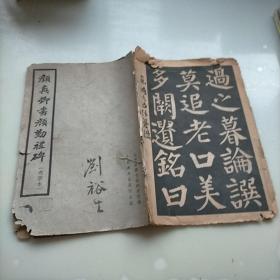 顏真卿書顏勤禮碑
劉裕生
過之暮論譔
莫追老口美
多闕遺銘曰